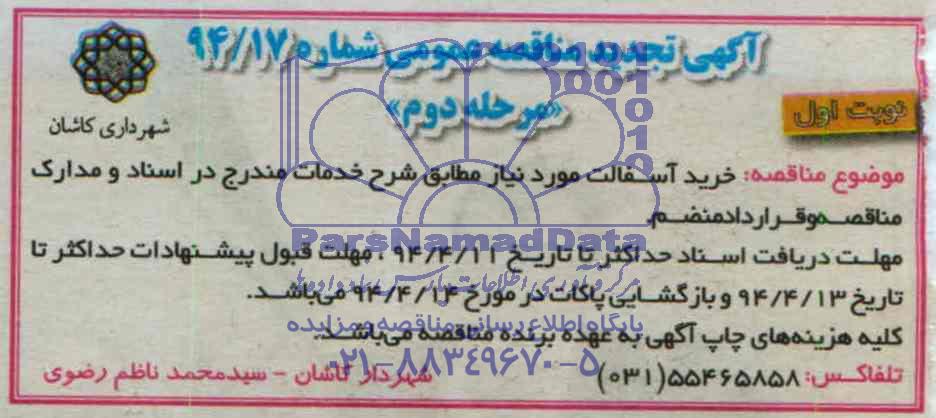 آگهی تجدید مناقصه عمومی شماره ۹۴/۱۷
«مرحله دوم»
شهرداری کاشان
نوبت اول
موضوع مناقصه: خرید آسفالت مورد نیاز مطابق شرح خدمات مندرج در اسناد و مدارک
مناقصه و قرارداد منضم.
مهلت دریافت اسناد حداکثر تا تاریخ ۹۴/۴/۱۱ ، مهلت قبول پیشنهادات حداکثر تا
تاریخ ۹۴/۴/۱۳ و بازگشایی پاکات در مورخ ۹۴/۴/۱۴ می‌باشد.
کلیه هزینه‌های چاپ آگهی به عهده برنده مناقصه می‌باشد.
تلفاکس: ۵۵۴۶۵۸۵۸(۰۳۱)
شهردار کاشان - سیدمحمد ناظم رضوی
ParsNamadData
مرکز فرآوری اطلاعات پارس نماد داده ها
پایگاه اطلاع رسانی مناقصه و مزایده
۰۲۱-۸۸۳۴۹۶۷۰-۵